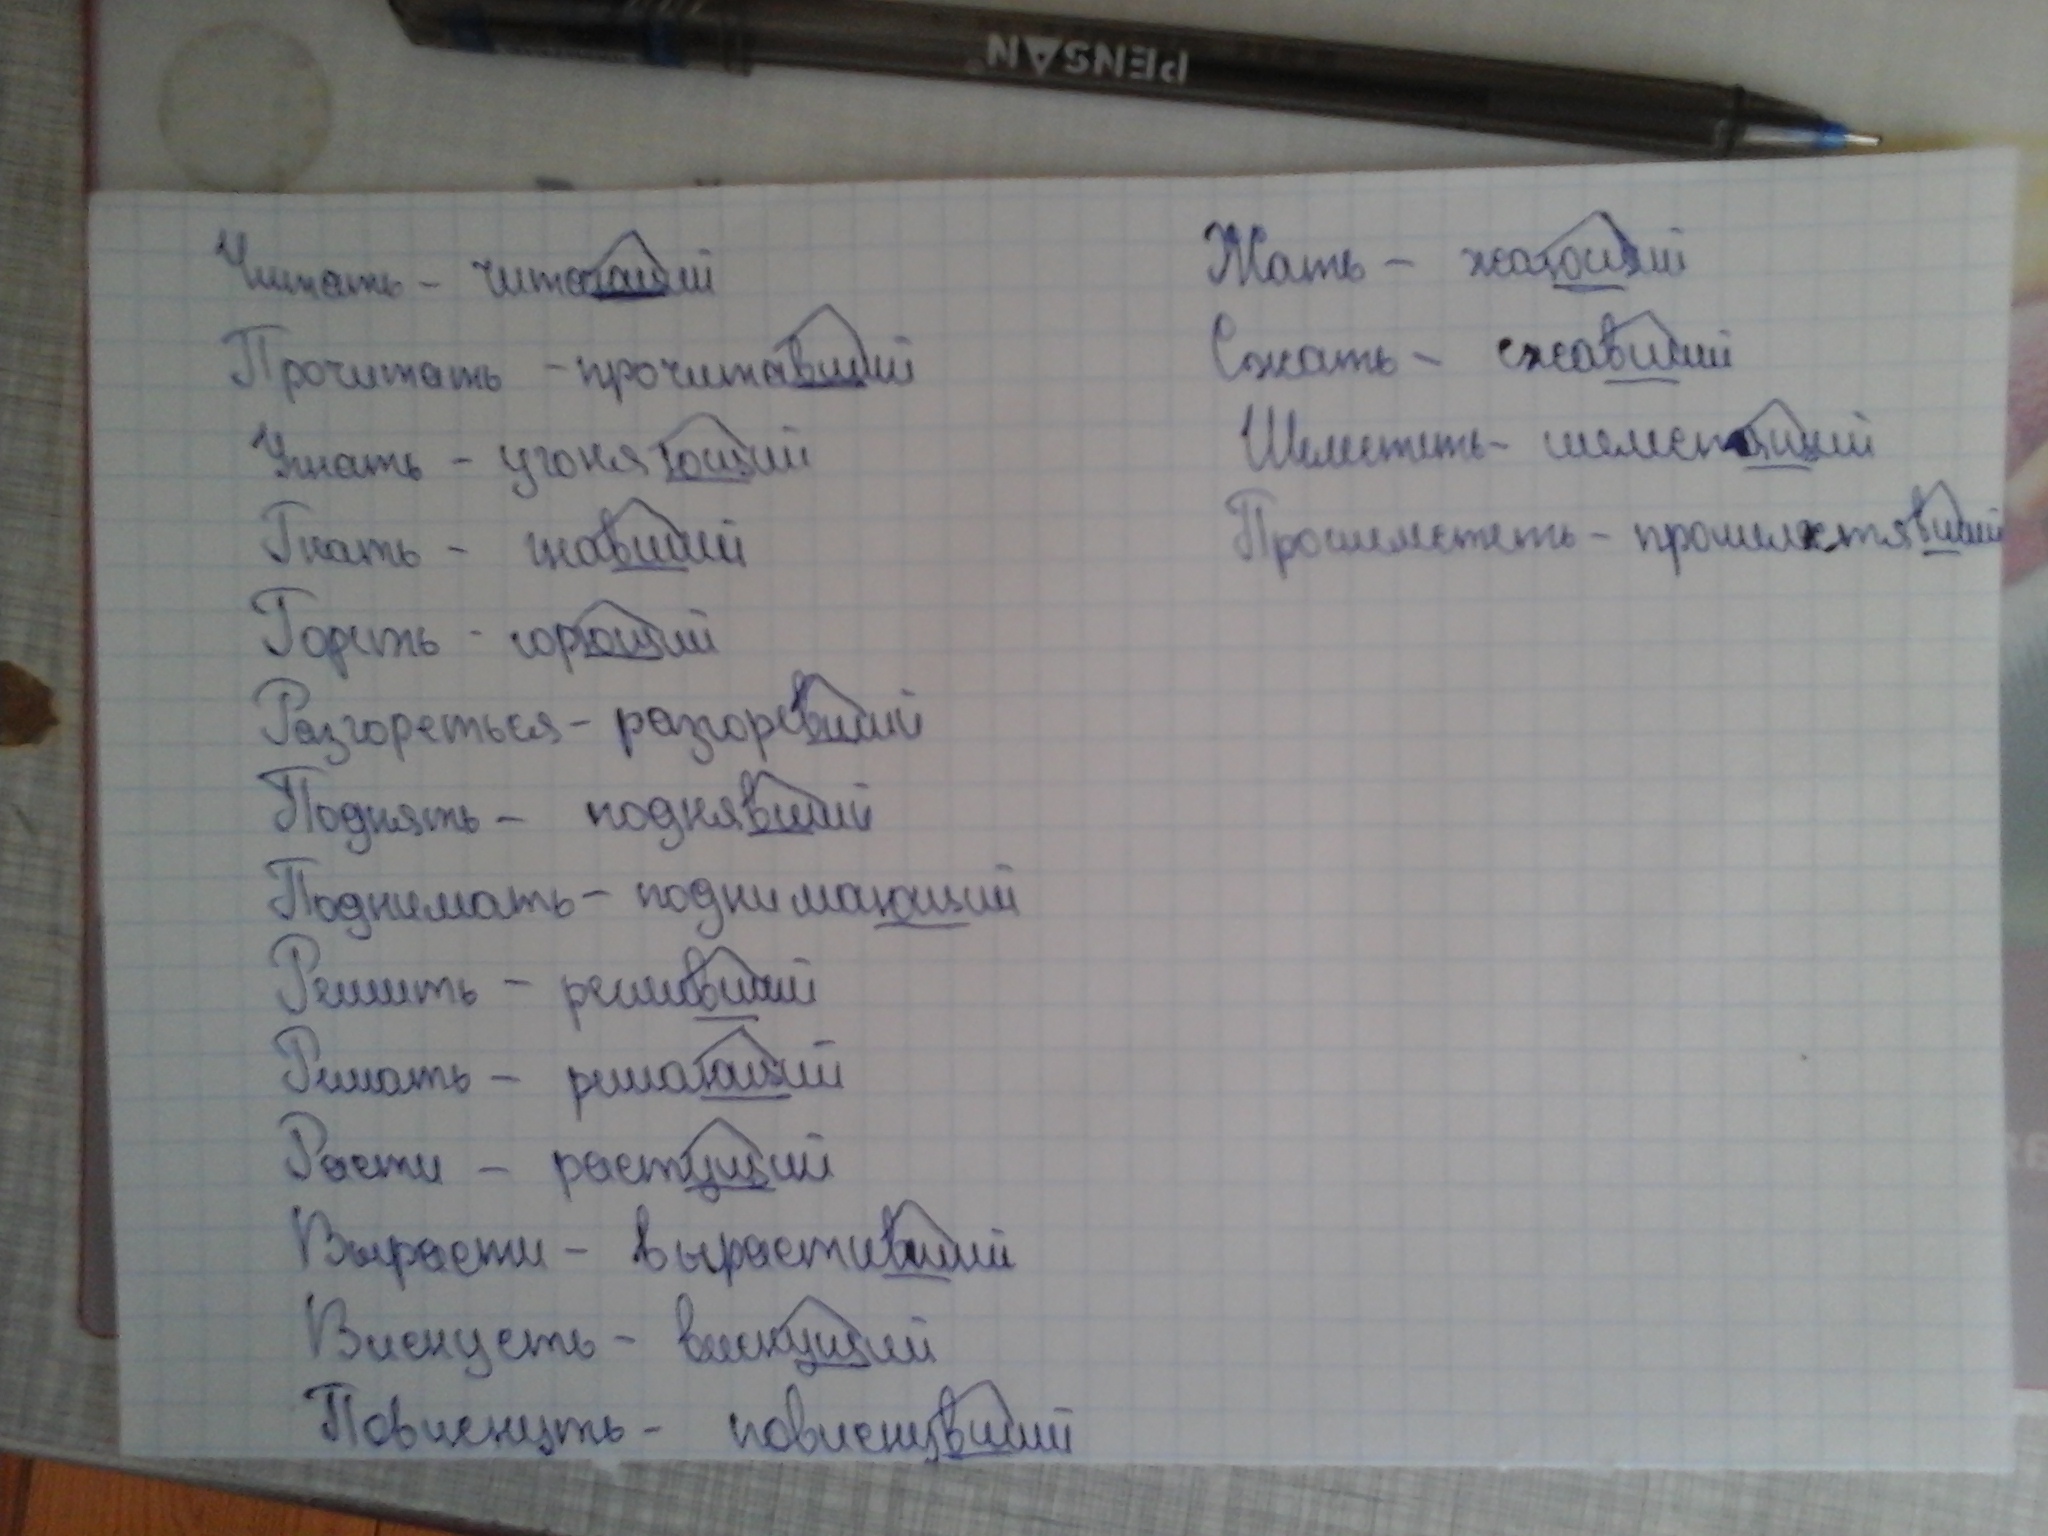 PENSAN
Читать - читающий
Прочитать - прочитавший
Угнать - угоняющий
Гнать - гнавший
Гореть - горющий
Разгореться - разгоревший
Поднять - поднявший
Поднимать - поднимающий
Решить - решивший
Решать - решающий
Расти - растущий
Вырасти - вырастивший
Виснуть - виснущий
Повиснуть - повиснувший
Жать - жающий
Сжать - сжавший
Шелестеть - шелестящий
Прошелестеть - прошелестявший